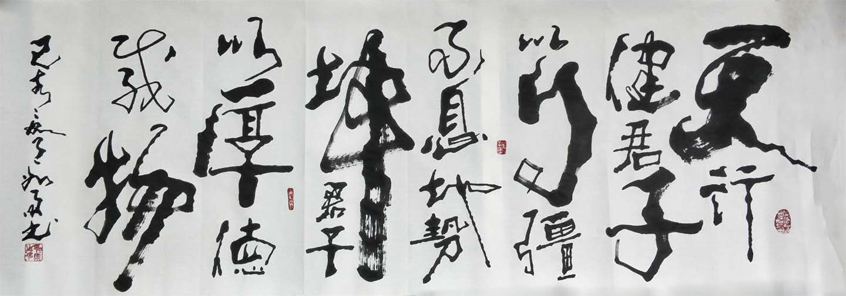 天行
健君子
以自彊
不息地勢
坤君子
以厚德
載物
己亥